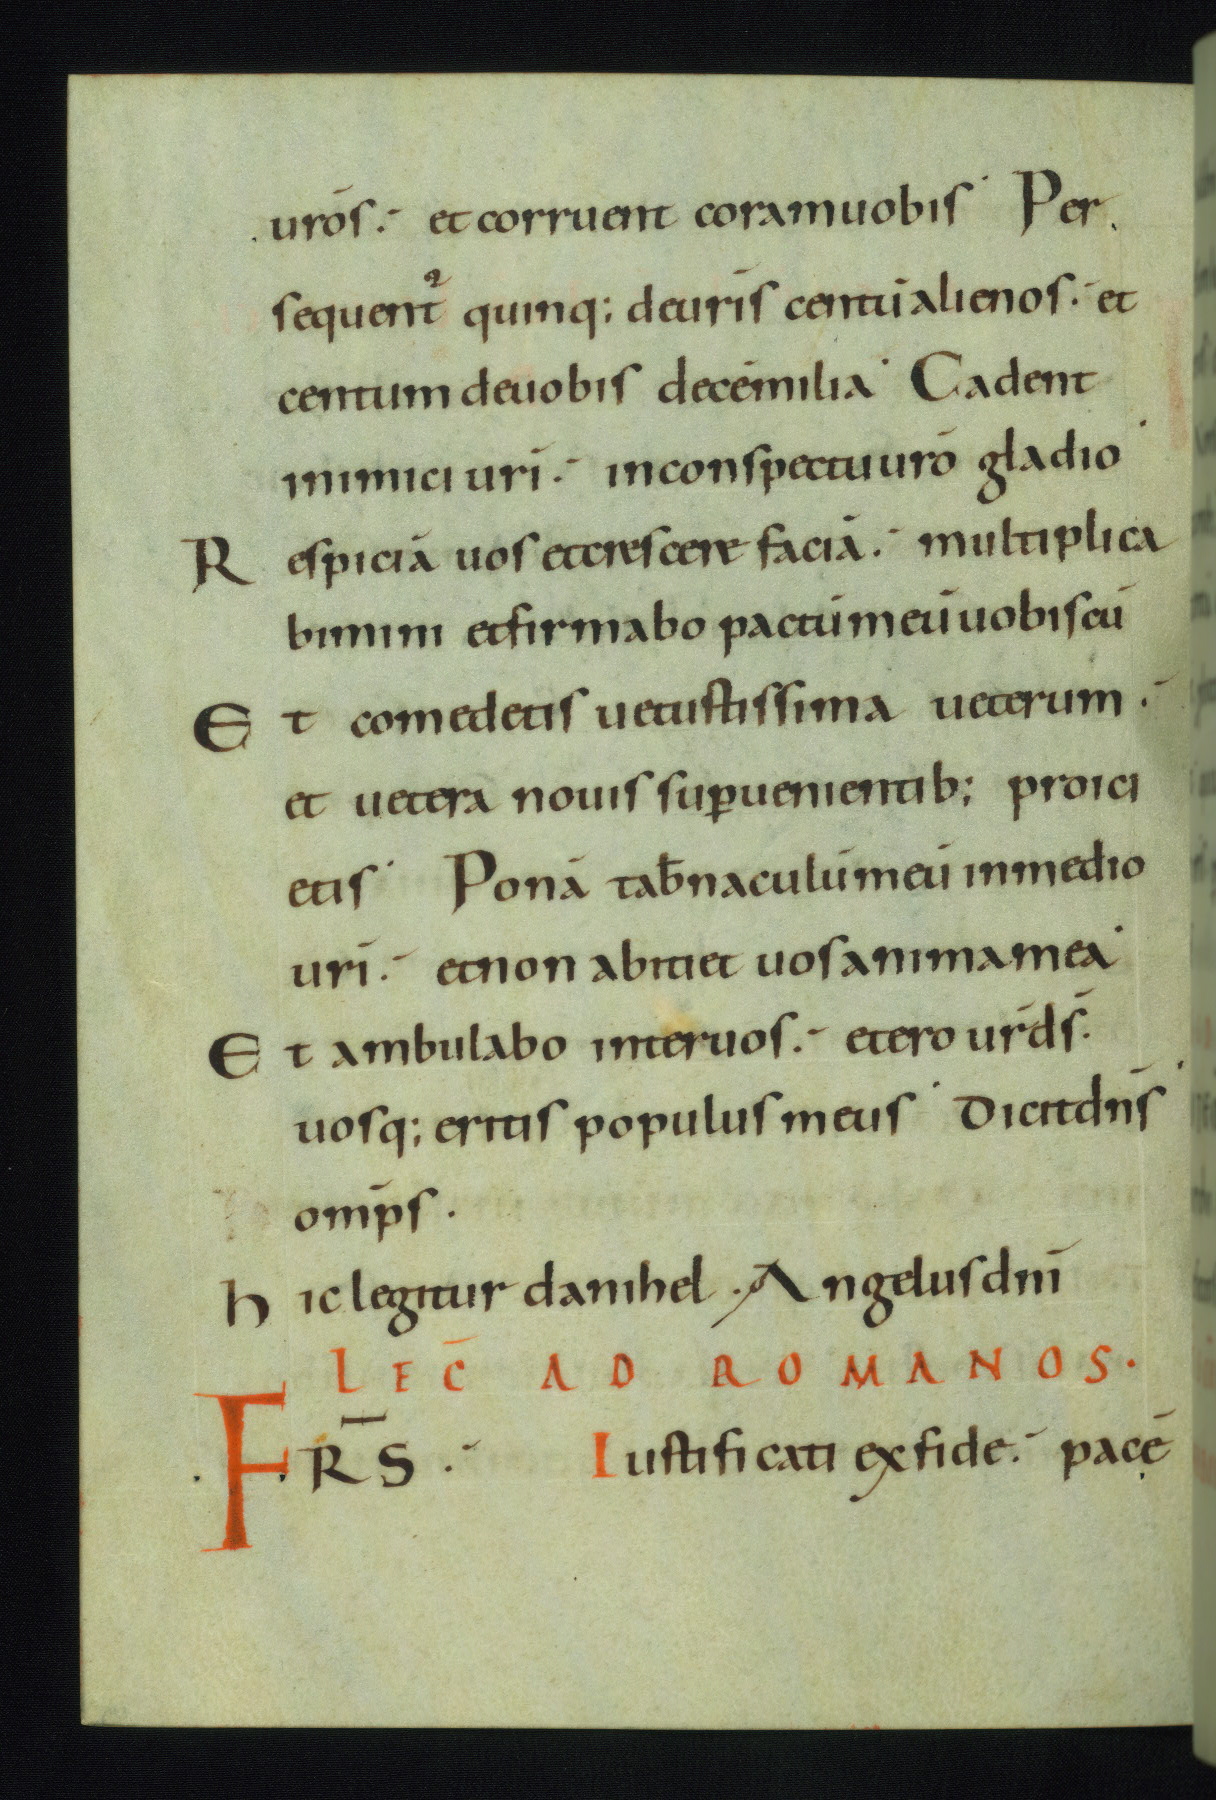 urōs :- et corruent coram uobis · Per
sequent᷑ quinq; de uris̄ centū alienos :- et
centum de uobis decē milia · Cadent
inimici uri̅ :- in conspectu urō gladio ·
Respiciā uos et crescere faciā :- multiplica
bimini et firmabo pactū meū uobiscū
Et comedetis uetustissima ueterum :-
et uetera nouis sup̄uenientib; proici
etis · Ponā tab̄naculū meū in medio
uri̅ :- et non abitiet uos anima mea ·
Et ambulabo inter uos :- et ero ur̄ ds̄ ·
uosq; eritis populus meus · Dicit dn̄s ·
omp̄s .
hic legitur danihel . Angelus dni̅
LEC̄ AD ROMANOS .
FR̄S :- Iustificati ex fide :- pacē